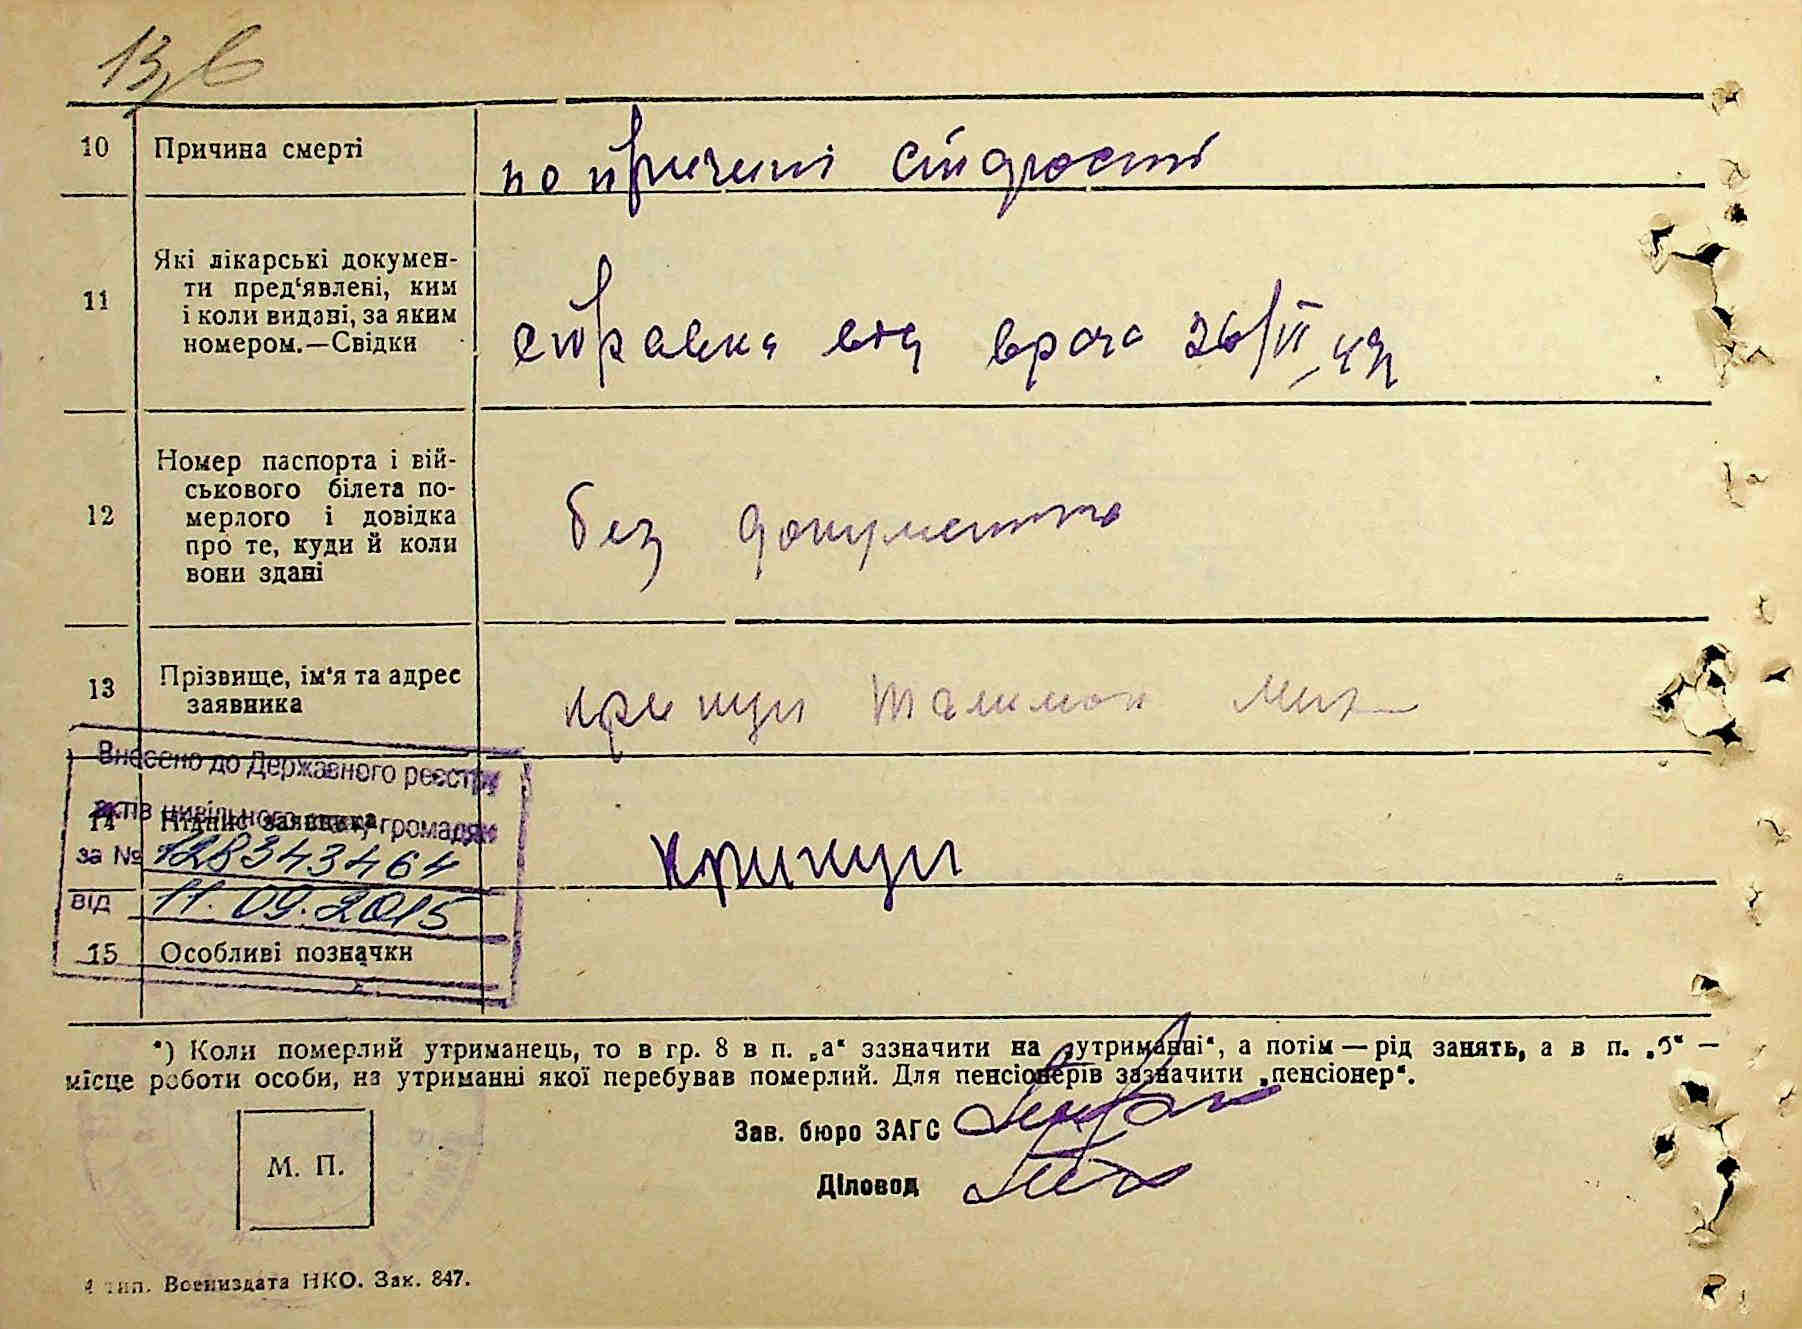 13,6
10 Причина смерті по причині старості
11 Які лікарські докумен-
ти пред‘явлені, ким
і коли видані, за яким
номером.—Свідки
справка від врача 26/VI
12 Номер паспорта і вій-
ськового білета по-
мерлого і довідка
про те, куди й коли
вони здані
без документа
13 Прізвище, ім‘я та адрес
заявника
Внесено до Державного реєстру
актів цивільного громадян
14 Підпис заявника
за № 128343464
від 11.09.2015
15 Особливі позначки
*) Коли померлий утриманець, то в гр. 8 в п. „а“ зазначити на „утриманні“, а потім — рід занять, а в п. „б“ —
місце роботи особи, на утриманні якої перебував померлий. Для пенсіонерів зазначити „пенсіонер“.
Зав. бюро ЗАГС
М. П.
Діловод
4 тип. Воениздата НКО. Зак. 847.